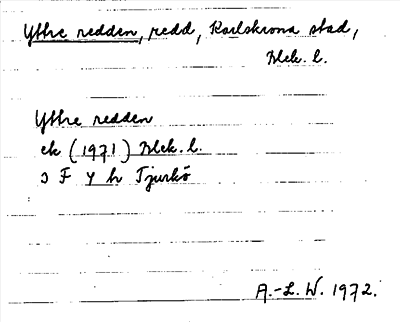 Yttre redden, redd, Karlskrona stad,
Blek. l.
Yttre redden
ek (1971) Blek. l.
J F Y h Tjurkö
A.-L. W. 1972.